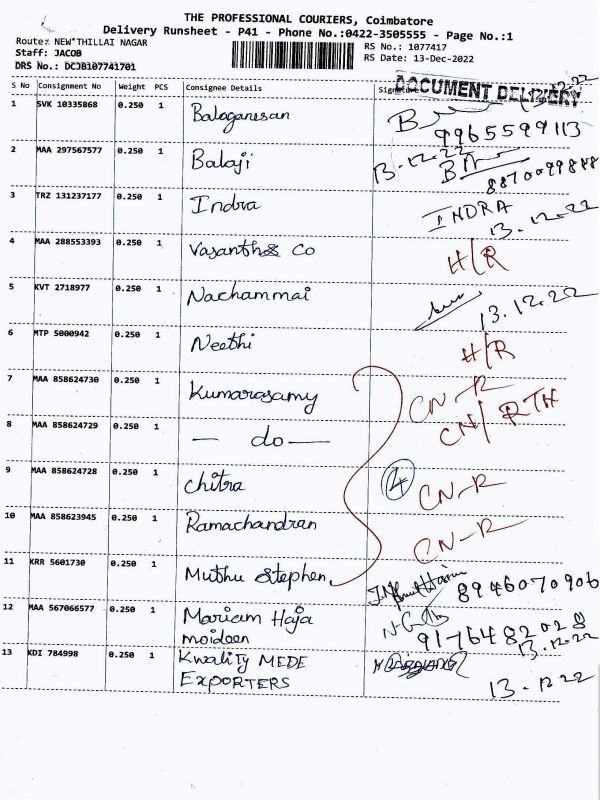 THE PROFESSIONAL COURIERS, Coimbatore
Delivery Runsheet - P41 - Phone No.:0422-3505555 - Page No.:1
Route: NEW THILLAI NAGAR
Staff: JACOB
DRS No.: DCJB107741701
RS No.: 1077417
RS Date: 13-Dec-2022
S No Consignment No Weight PCS Consignee Details Signature
DOCUMENT DELIVERY
1 SVK 10335868 0.250 1 Baloganesan 9965599113
2 MAA 297567577 0.250 1 Balaji 13.12.22
3 TRZ 131237177 0.250 1 Indra INDRA 13.12.22
4 MAA 288553393 0.250 1 Vasanth & Co H/R
5 KVT 2718977 0.250 1 Nachammai 13.12.22
6 MTP 5000942 0.250 1 Neethi H/R
7 MAA 858624730 0.250 1 Kumarasamy CN-R
8 MAA 858624729 0.250 1 — do — CN/RTH
9 MAA 858624728 0.250 1 chitra 4 CN-R
10 MAA 858623945 0.250 1 Ramachandran CN-R
11 KRR 5601730 0.250 1 Muthu Stephen 8946070906
12 MAA 567066577 0.250 1 Mariam Haja 9176482028
moideen 13.12.22
13 KDI 784998 0.250 1 Kwality MEDE
EXPORTERS 13.12.22